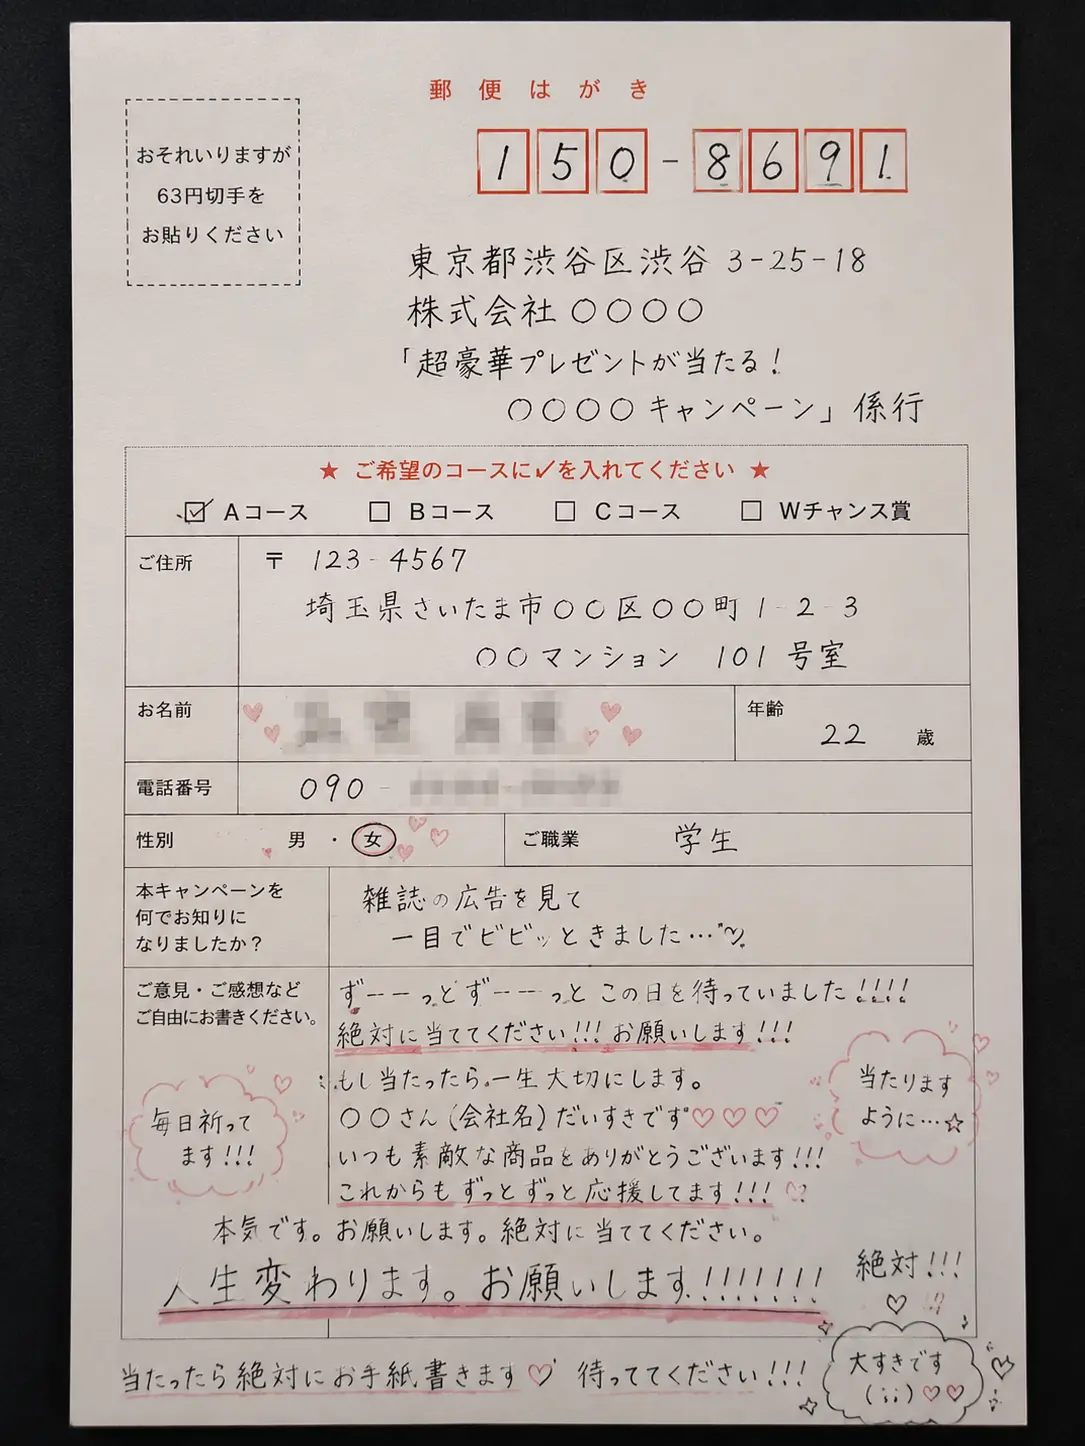 郵便はがき
おそれいりますが
63円切手を
お貼りください
150-8691
東京都渋谷区渋谷 3-25-18
株式会社 ○○○○
「超豪華プレゼントが当たる!
○○○○キャンペーン」係行
★ ご希望のコースに✓を入れてください ★
☑ Aコース □ Bコース □ Cコース □ Wチャンス賞
ご住所 〒 123-4567
埼玉県さいたま市○○区○○町 1-2-3
○○マンション 101 号室
お名前
年齢 22 歳
電話番号 090-
性別 男・女
ご職業 学生
本キャンペーンを
何でお知りに
なりましたか?
雑誌の広告を見て
一目でビビッときました…♡
ご意見・ご感想など
ご自由にお書きください。
ずーーっとずーーっと この日を待っていました!!!!
絶対に当ててください!!! お願いします!!!
もし当たったら一生大切にします。
○○さん(会社名)だいすきです♡♡♡
いつも素敵な商品をありがとうございます!!!
これからもずっとずっと応援してます!!!♡
毎日祈って
ます!!!
当たります
ように…☆
本気です。お願いします。絶対に当ててください。
人生変わります。お願いします!!!!!!!
絶対!!!
♡
当たったら絶対にお手紙書きます♡ 待っててください!!!
大すきです
(;;)♡♡